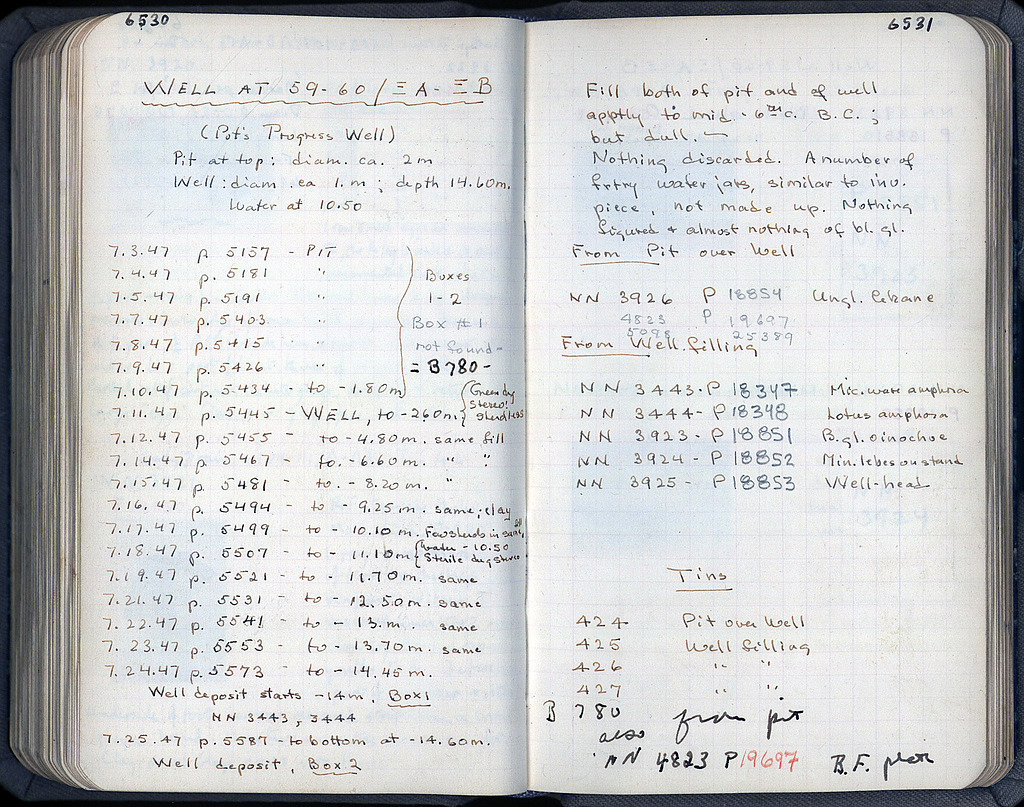 6530
WELL AT 59-60 / ΞA - ΞB
(Pot's Progress Well)
Pit at top: diam. ca. 2 m
Well: diam. ca 1. m; depth 14.60m.
Water at 10.50
7.3.47 p. 5157 - PIT
7.4.47 p. 5181 "
7.5.47 p. 5191 "
7.7.47 p. 5403 "
7.8.47 p. 5415 "
7.9.47 p. 5426 "
Boxes
1-2
Box #1
not found -
= B780 -
7.10.47 p. 5434 - to - 1.80m
7.11.47 p. 5445 - WELL, to -2.60m.
7.12.47 p. 5455 - to - 4.80 m. same fill
7.14.47 p. 5467 - to. - 6.60 m. " "
7.15.47 p. 5481 - to. - 8.20 m. "
7.16.47 p. 5494 - to - 9.25 m. same; clay
7.17.47 p. 5499 - to - 10.10 m. Few sherds in same
7.18.47 p. 5507 - to - 11.10m (Water - 10.50
Sterile dug stereo
7.19.47 p. 5521 - to - 11.70 m. same
7.21.47 p. 5531 - to - 12.50 m. same
7.22.47 p. 5541 - to - 13. m. same
7.23.47 p. 5553 - to - 13.70 m. same
7.24.47 p. 5573 - to - 14.45 m.
Well deposit starts -14 m, Box 1
NN 3443, 3444
7.25.47 p. 5587 - to bottom at -14.60 m.
Well deposit, Box 2
6531
Fill both of pit and of well
apptly to mid - 6th c. B.C.;
but dull. -
Nothing discarded. A number of
frtry water jars, similar to inv.
piece, not made up. Nothing
figured + almost nothing of bl. gl.
From Pit over Well
NN 3926 P 18854 Ungl. lekane
4823 P 19697
5098 25389
From Well filling
NN 3443 - P 18347 Mic. ware amphora
NN 3444 - P 18348 Lotus amphora
NN 3923 - P 18851 B. gl. oinochoe
NN 3924 - P 18852 Min. lebes on stand
NN 3925 - P 18853 Well-head
Tins
424 Pit over Well
425 Well filling
426 " "
427 " "
B 780 from pit
also
NN 4823 P 19697 B.F.